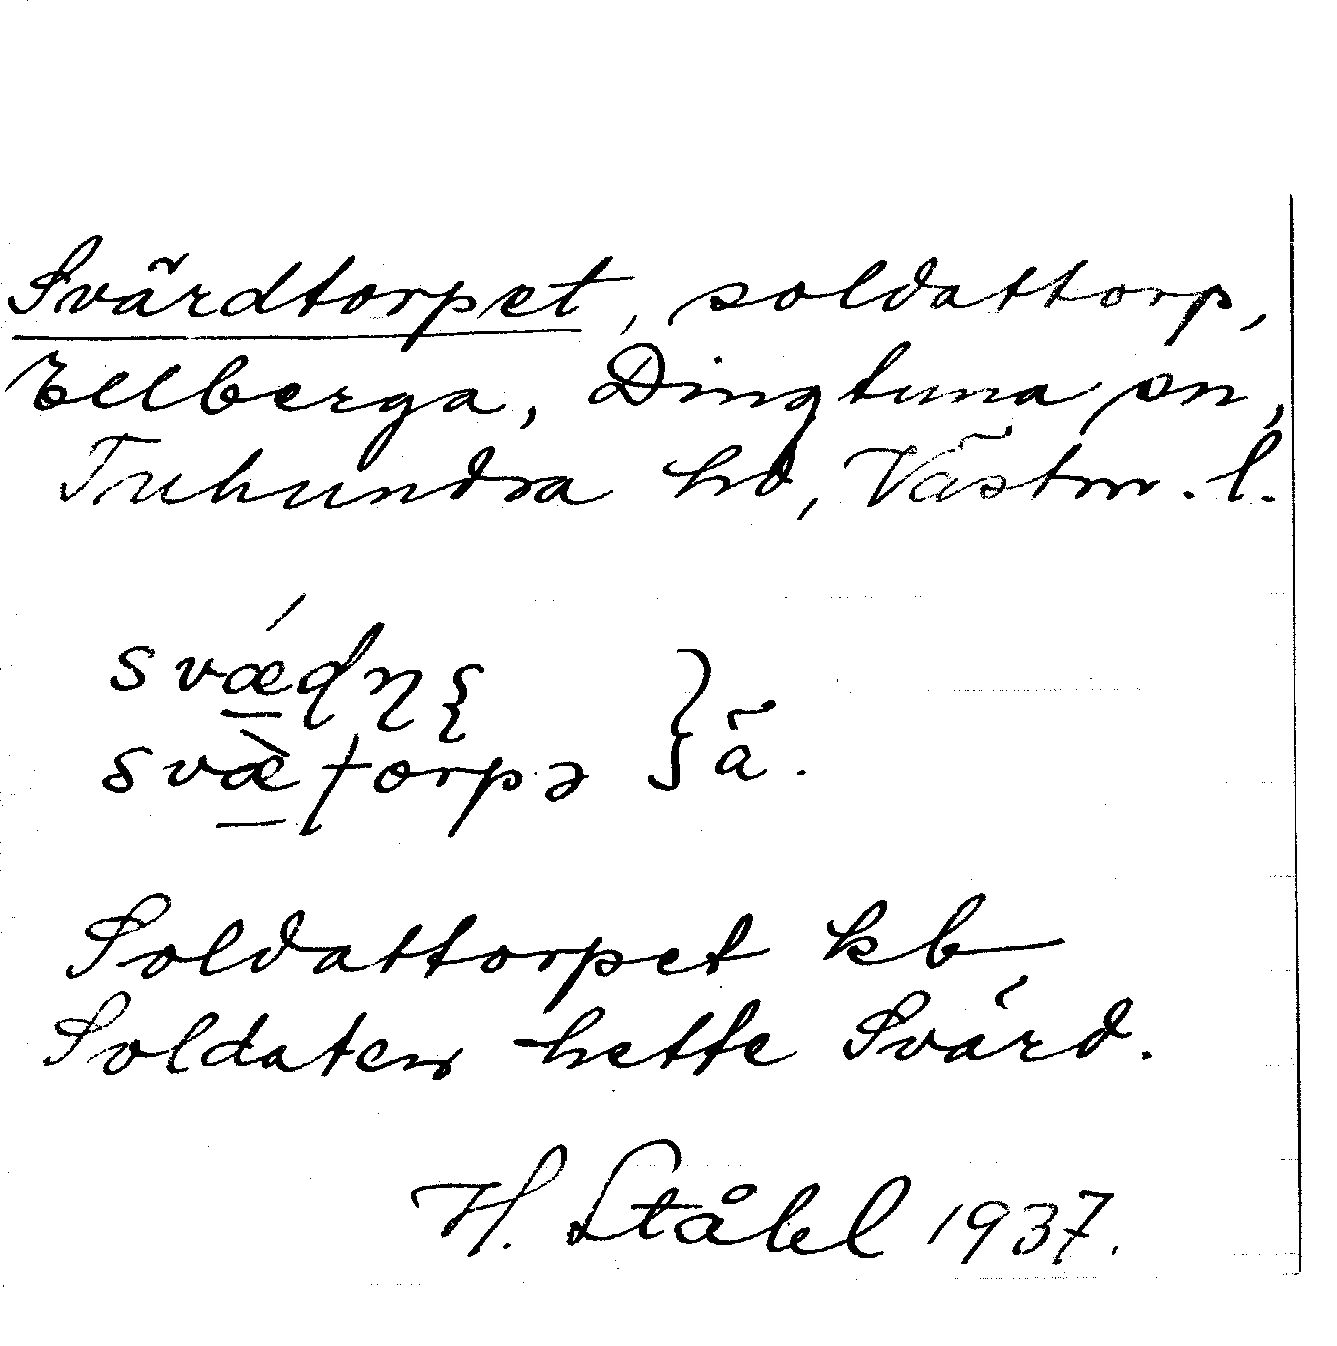 Svärdtorpet, soldattorp,
Ellberga, Dingtuna sn,
Tuhundra hd, Västm. l.
svǽɖɳʂ
svæ̀ʈorpə } ä.
Soldattorpet kb
Soldaten hette Svärd.
H. Ståhl 1937.